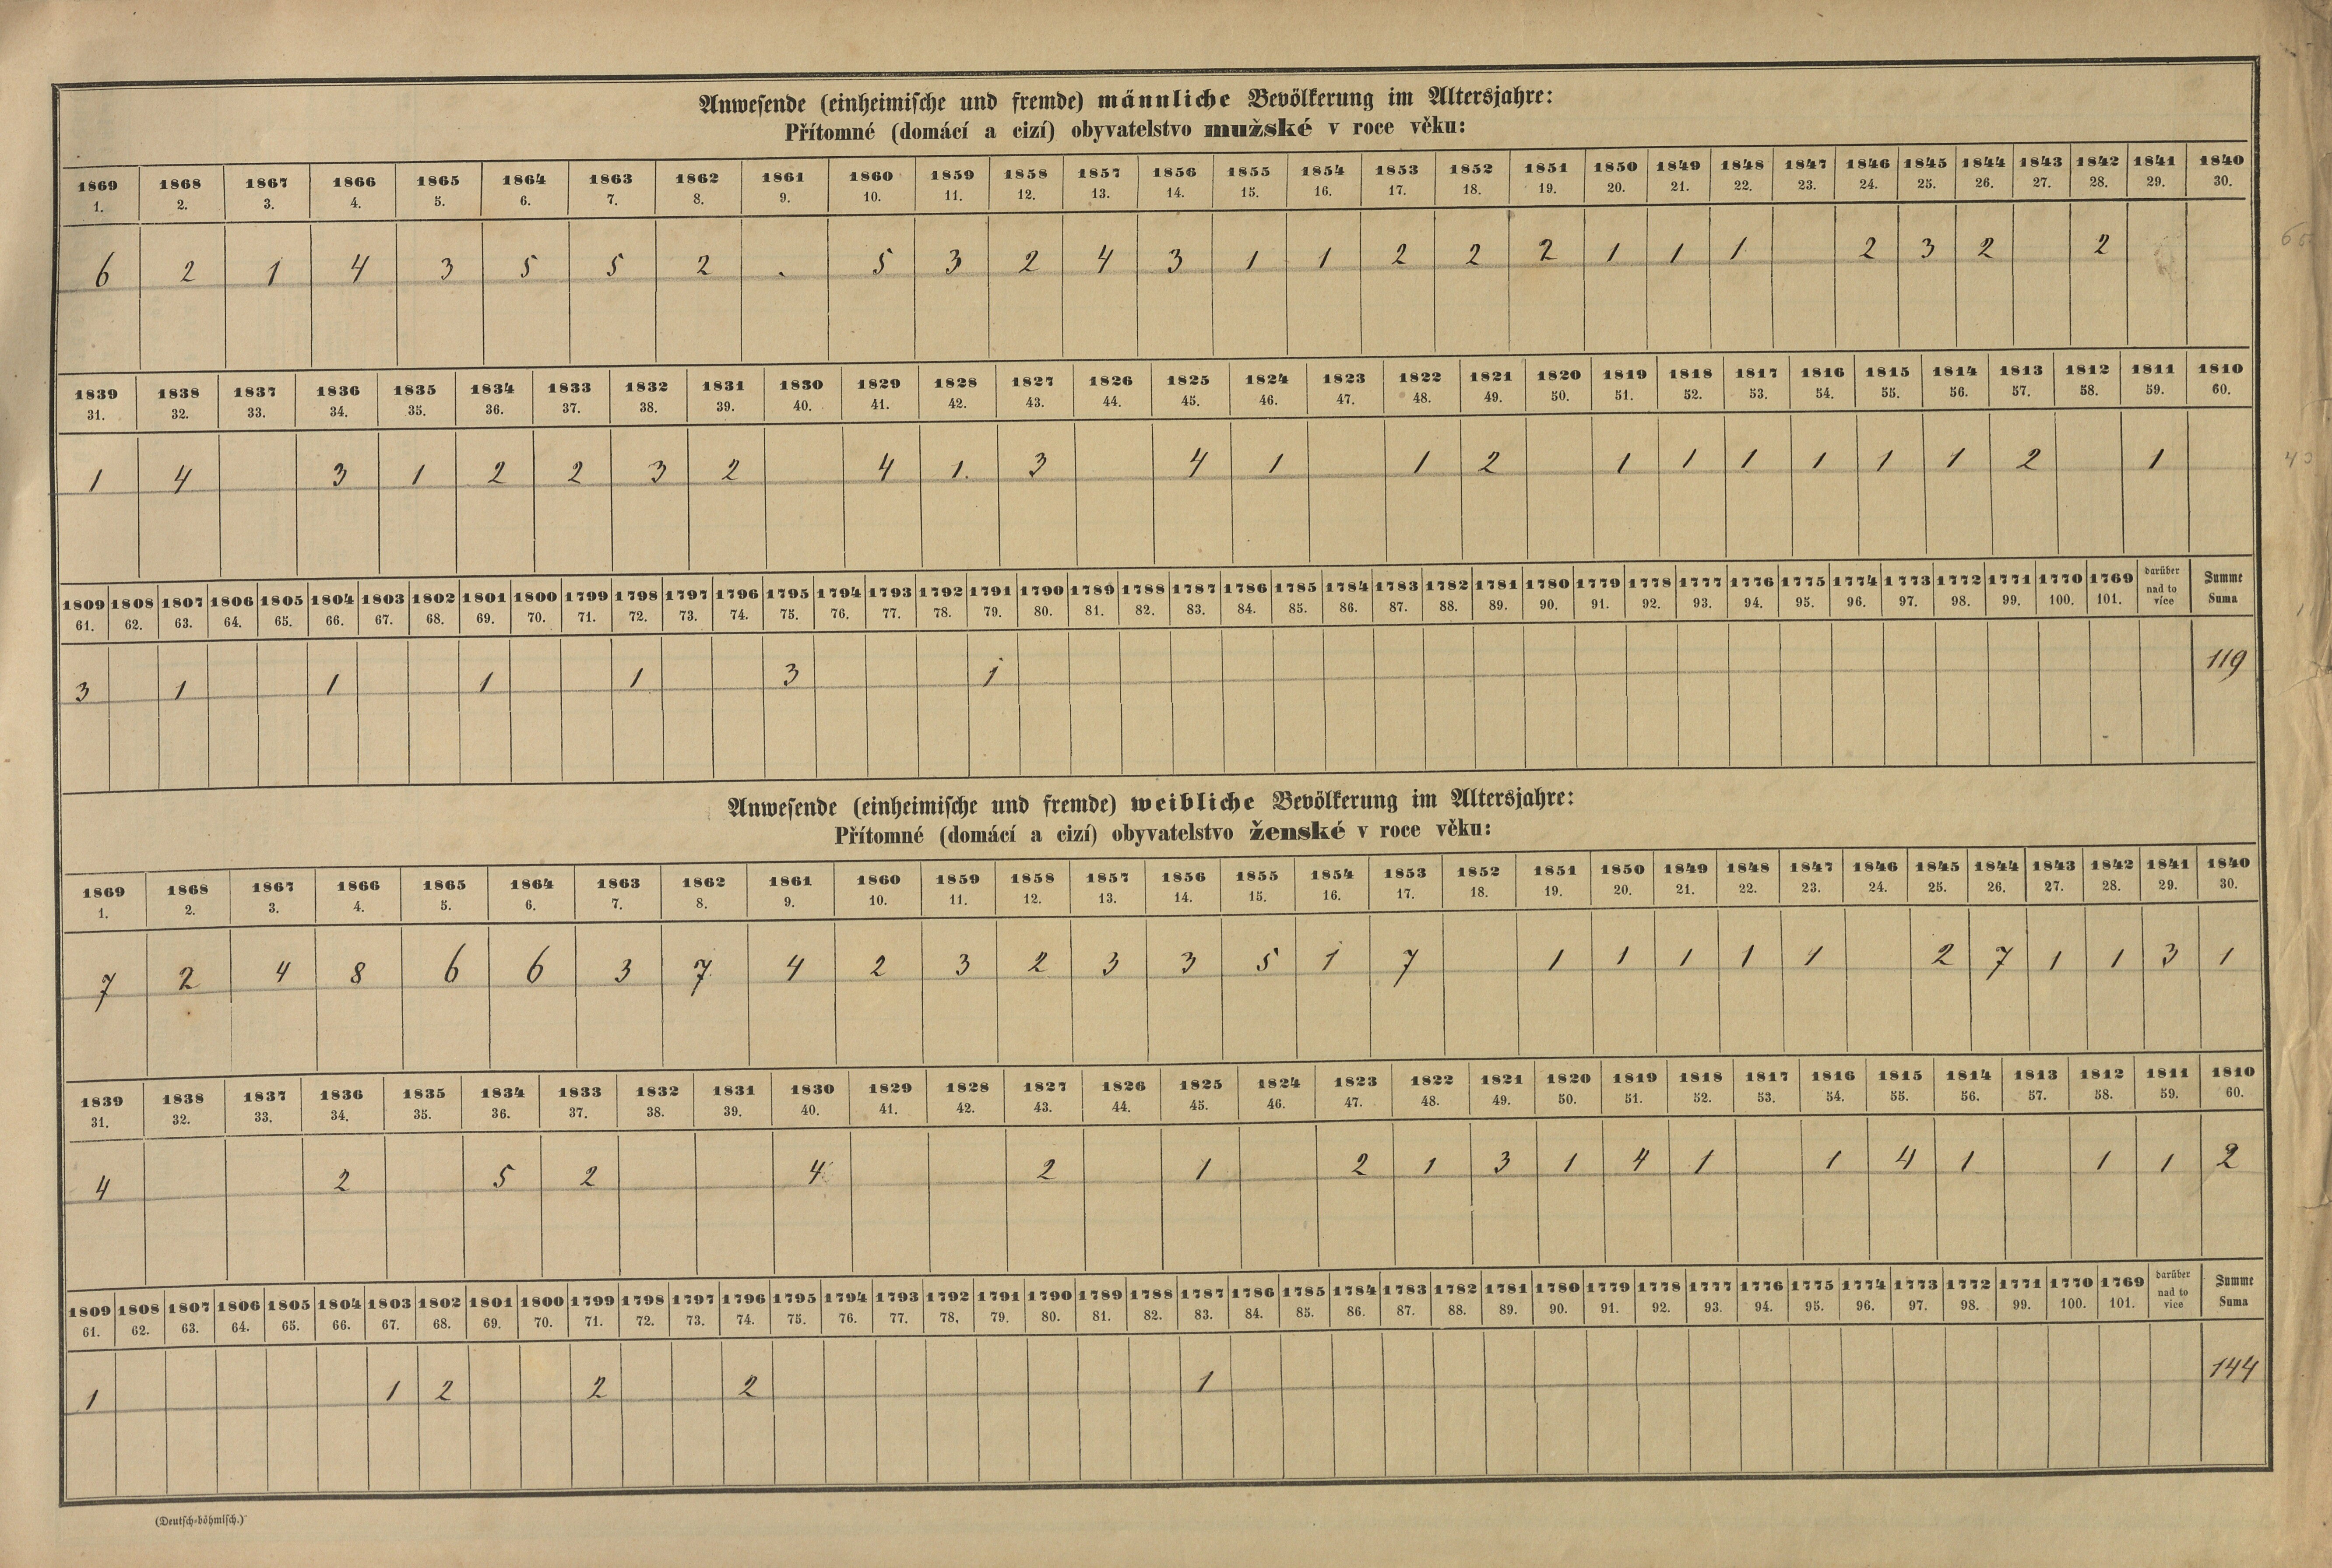 Anwesende (einheimische und fremde) männliche Bevölkerung im Altersjahre:
Přítomné (domácí a cizí) obyvatelstvo mužské v roce věku:
1869 1868 1867 1866 1865 1864 1863 1862 1861 1860 1859 1858 1857 1856 1855 1854 1853 1852 1851 1850 1849 1848 1847 1846 1845 1844 1843 1842 1841 1840
1. 2. 3. 4. 5. 6. 7. 8. 9. 10. 11. 12. 13. 14. 15. 16. 17. 18. 19. 20. 21. 22. 23. 24. 25. 26. 27. 28. 29. 30.
6 2 1 4 3 5 5 2 . 5 3 2 4 3 1 1 2 2 2 1 1 1 2 3 2 2
1839 1838 1837 1836 1835 1834 1833 1832 1831 1830 1829 1828 1827 1826 1825 1824 1823 1822 1821 1820 1819 1818 1817 1816 1815 1814 1813 1812 1811 1810
31. 32. 33. 34. 35. 36. 37. 38. 39. 40. 41. 42. 43. 44. 45. 46. 47. 48. 49. 50. 51. 52. 53. 54. 55. 56. 57. 58. 59. 60.
1 4 3 1 2 2 3 2 4 1. 3 4 1 1 2 1 1 1 1 1 1 2 1
1809 1808 1807 1806 1805 1804 1803 1802 1801 1800 1799 1798 1797 1796 1795 1794 1793 1792 1791 1790 1789 1788 1787 1786 1785 1784 1783 1782 1781 1780 1779 1778 1777 1776 1775 1774 1773 1772 1771 1770 1769 darüber nad to více Summe Suma
61. 62. 63. 64. 65. 66. 67. 68. 69. 70. 71. 72. 73. 74. 75. 76. 77. 78. 79. 80. 81. 82. 83. 84. 85. 86. 87. 88. 89. 90. 91. 92. 93. 94. 95. 96. 97. 98. 99. 100. 101.
3 1 1 1 1 3 1 119
Anwesende (einheimische und fremde) weibliche Bevölkerung im Altersjahre:
Přítomné (domácí a cizí) obyvatelstvo ženské v roce věku:
1869 1868 1867 1866 1865 1864 1863 1862 1861 1860 1859 1858 1857 1856 1855 1854 1853 1852 1851 1850 1849 1848 1847 1846 1845 1844 1843 1842 1841 1840
1. 2. 3. 4. 5. 6. 7. 8. 9. 10. 11. 12. 13. 14. 15. 16. 17. 18. 19. 20. 21. 22. 23. 24. 25. 26. 27. 28. 29. 30.
7 2 4 8 6 6 3 7 4 2 3 2 3 3 5 1 7 1 1 1 1 1 2 7 1 1 3 1
1839 1838 1837 1836 1835 1834 1833 1832 1831 1830 1829 1828 1827 1826 1825 1824 1823 1822 1821 1820 1819 1818 1817 1816 1815 1814 1813 1812 1811 1810
31. 32. 33. 34. 35. 36. 37. 38. 39. 40. 41. 42. 43. 44. 45. 46. 47. 48. 49. 50. 51. 52. 53. 54. 55. 56. 57. 58. 59. 60.
4 2 5 2 4 2 1 2 1 3 1 4 1 1 4 1 1 1 2
1809 1808 1807 1806 1805 1804 1803 1802 1801 1800 1799 1798 1797 1796 1795 1794 1793 1792 1791 1790 1789 1788 1787 1786 1785 1784 1783 1782 1781 1780 1779 1778 1777 1776 1775 1774 1773 1772 1771 1770 1769 darüber nad to více Summe Suma
61. 62. 63. 64. 65. 66. 67. 68. 69. 70. 71. 72. 73. 74. 75. 76. 77. 78. 79. 80. 81. 82. 83. 84. 85. 86. 87. 88. 89. 90. 91. 92. 93. 94. 95. 96. 97. 98. 99. 100. 101.
1 1 2 2 2 1 144
(Deutsch-böhmisch.)